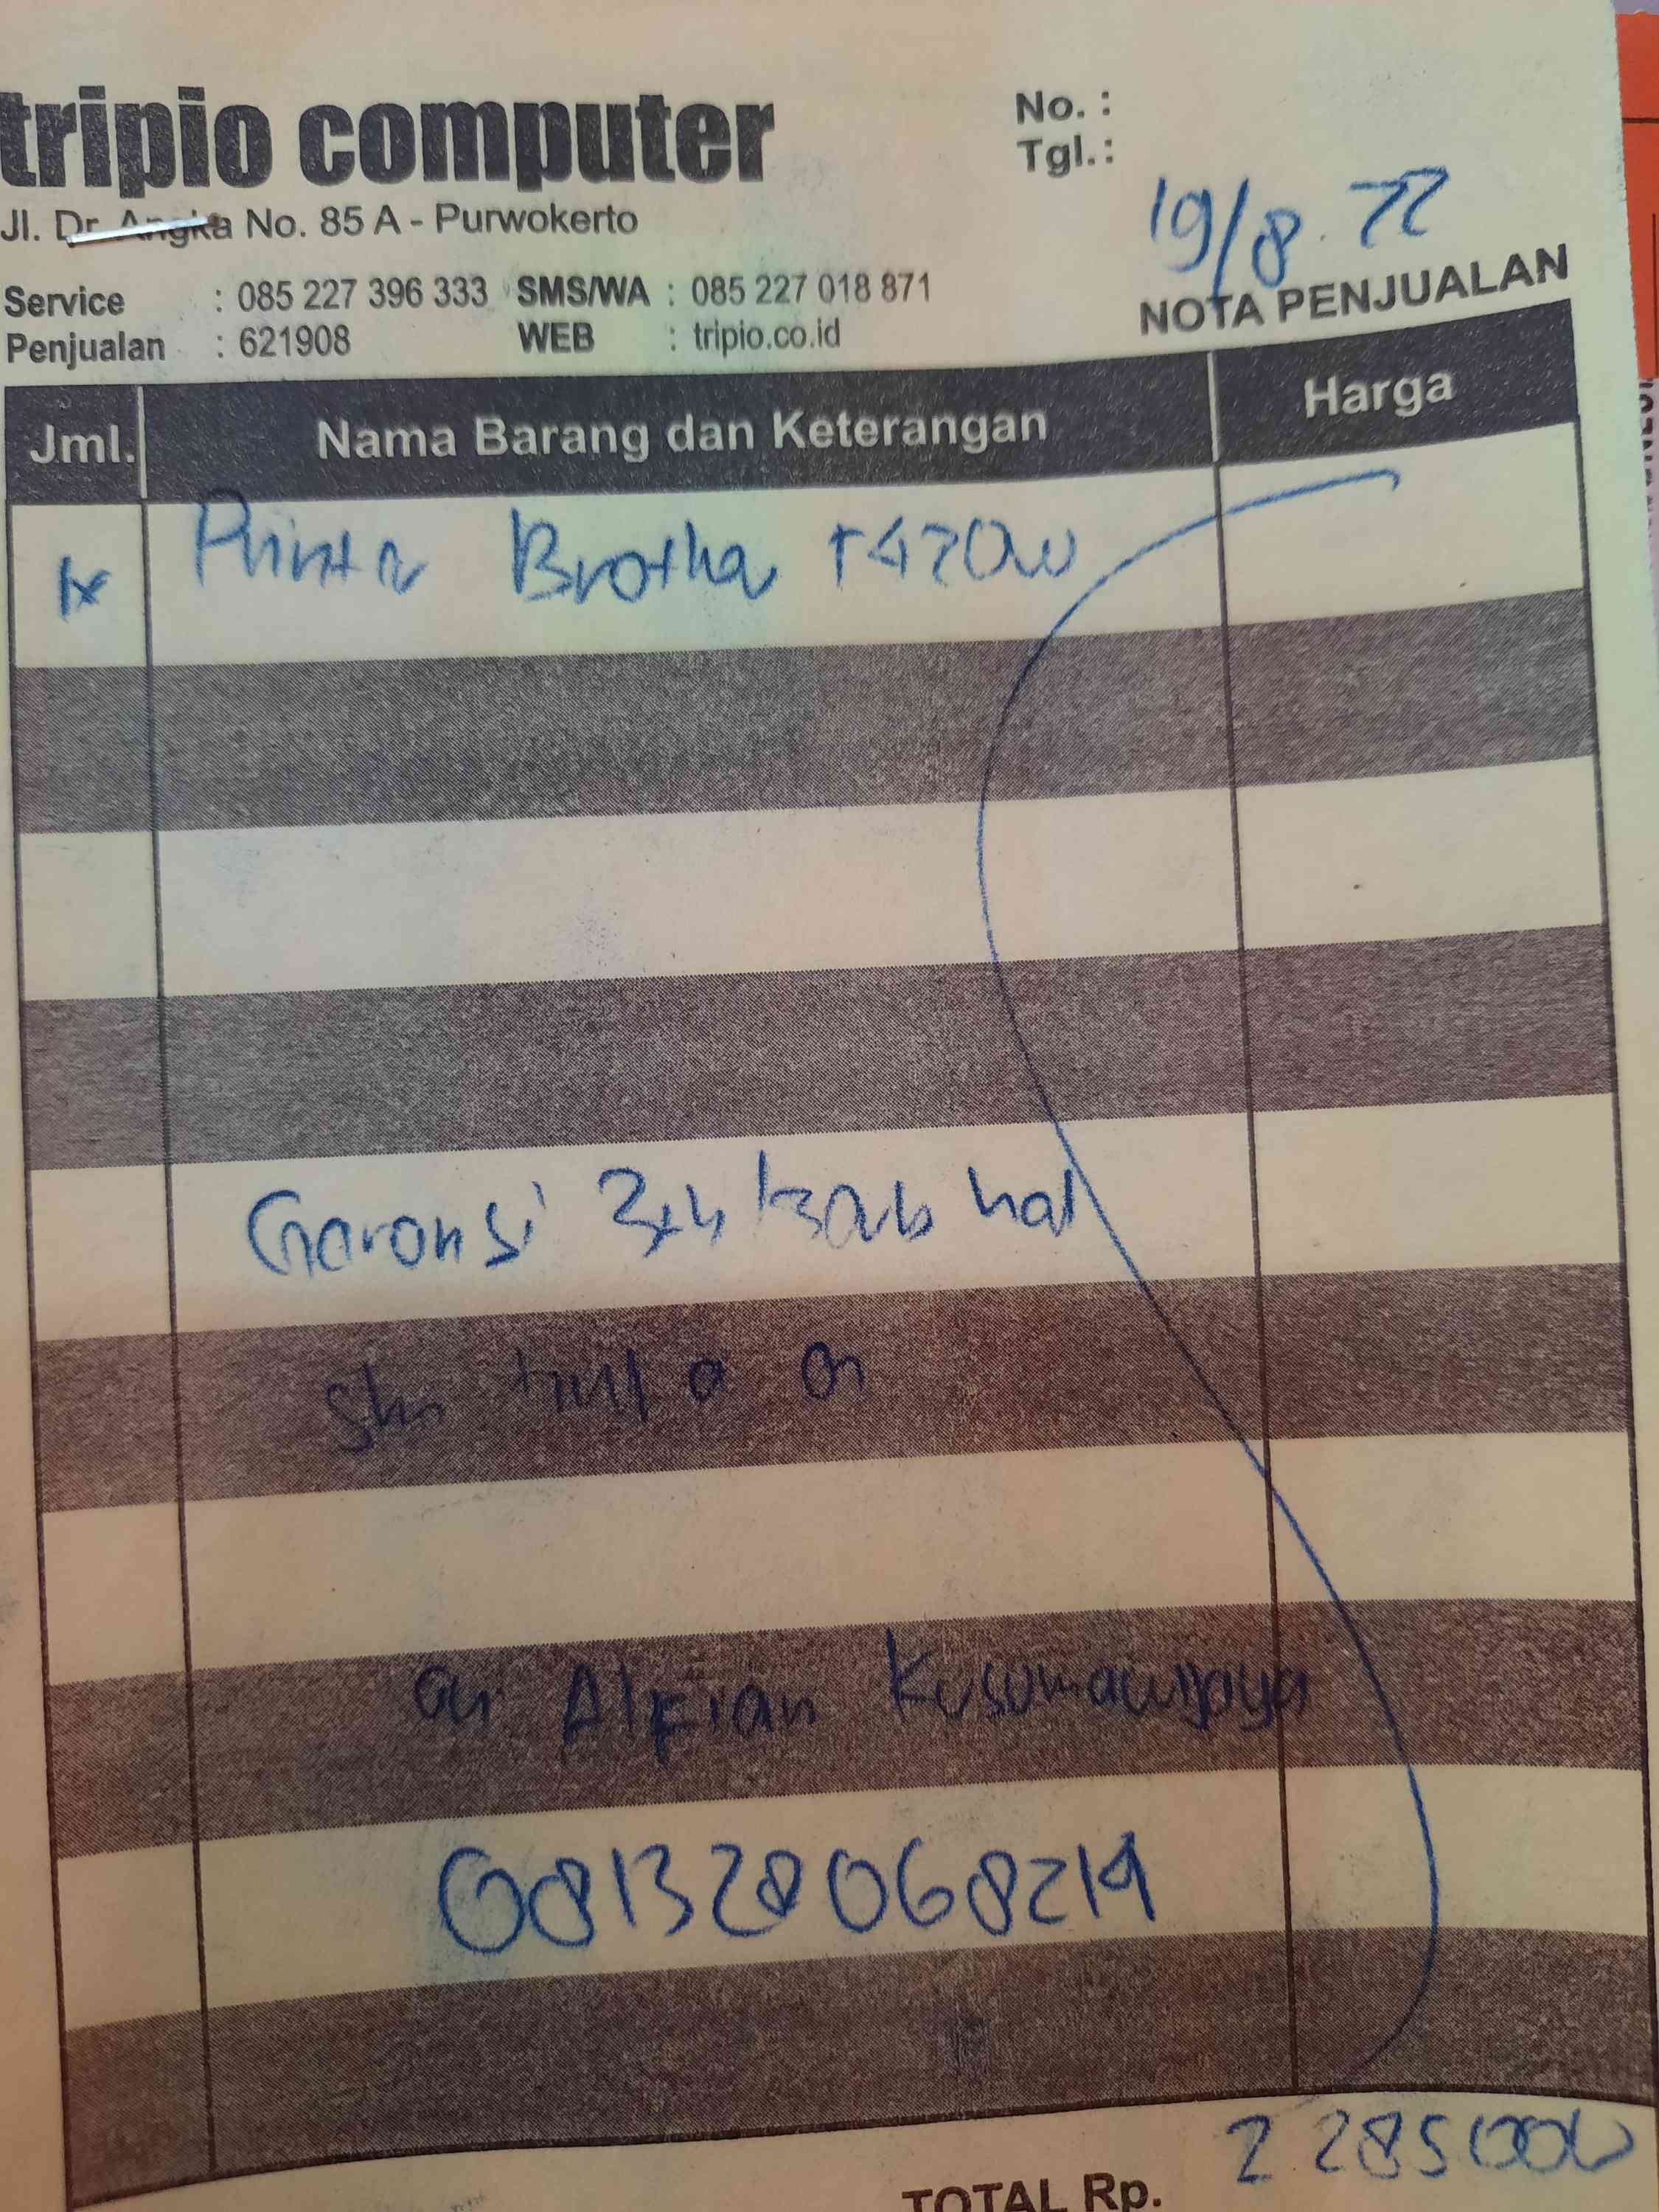 tripio computer
Jl. Dr. Angka No. 85 A - Purwokerto
Service : 085 227 396 333 SMS/WA : 085 227 018 871
Penjualan : 621908 WEB : tripio.co.id
No. :
Tgl. :
19/8. 22
NOTA PENJUALAN
Jml. Nama Barang dan Keterangan Harga
1x Printer Brother T420W
Garansi 3th
an Alfian Kusumawijaya
081328068214
TOTAL Rp. 2285000